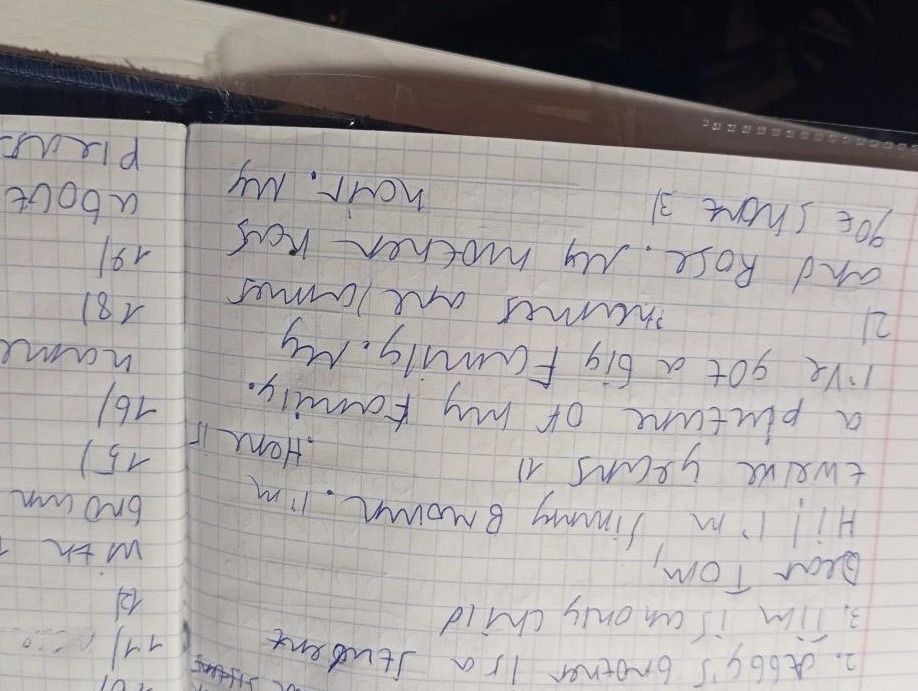 2. Abby's brother is a student
3. Tim is an only child
Dear Tom,
Hi! I'm Jimmy Brown. I'm
twelve years 1) . Here is
a picture of my family.
I've got a big family. My
2) names are James
and Rose. My mother has
got short 3) hair. My
10)
11)
12)
with
brown
15)
16)
name
18)
19)
about
Pleas